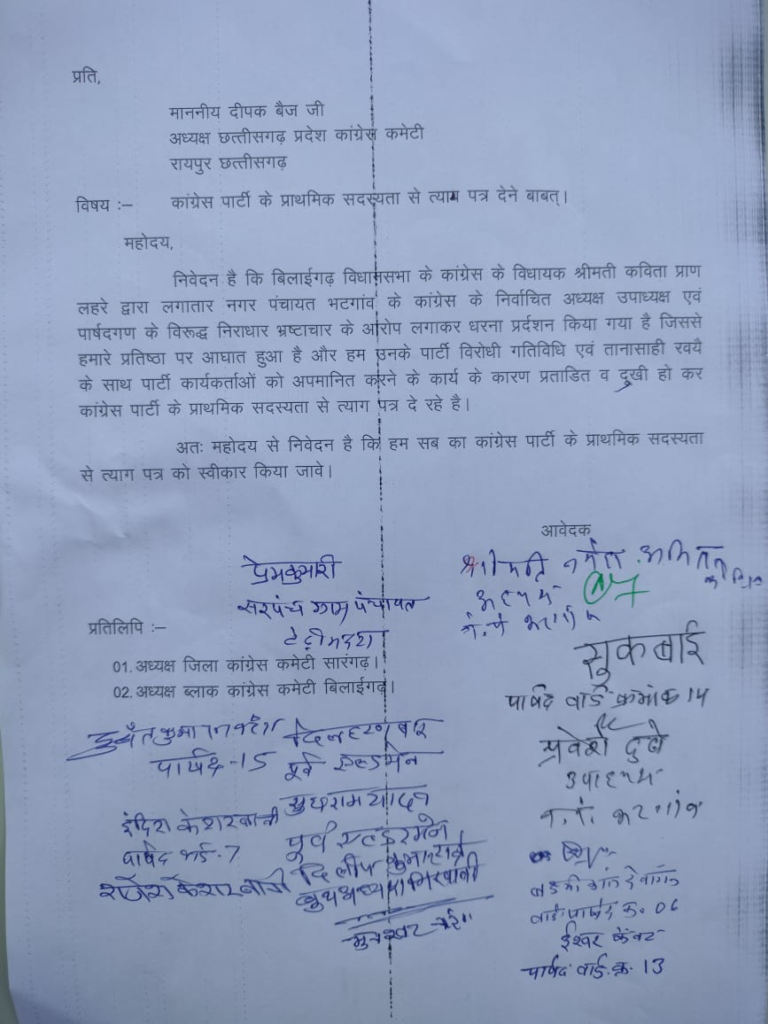 प्रति,
माननीय दीपक बैज जी
अध्यक्ष छत्तीसगढ़ प्रदेश कांग्रेस कमेटी
रायपुर छत्तीसगढ़
विषय :– कांग्रेस पार्टी के प्राथमिक सदस्यता से त्याग पत्र देने बाबत्।
महोदय,
निवेदन है कि बिलाईगढ़ विधानसभा के कांग्रेस के विधायक श्रीमती कविता प्राण
लहरे द्वारा लगातार नगर पंचायत भटगांव के कांग्रेस के निर्वाचित अध्यक्ष उपाध्यक्ष एवं
पार्षदगण के विरूद्ध निराधार भ्रष्टाचार के आरोप लगाकर धरना प्रर्दशन किया गया है जिससे
हमारे प्रतिष्ठा पर आघात हुआ है और हम उनके पार्टी विरोधी गतिविधि एवं तानासाही रवयै
के साथ पार्टी कार्यकर्ताओं को अपमानित करने के कार्य के कारण प्रताडित व दुखी हो कर
कांग्रेस पार्टी के प्राथमिक सदस्यता से त्याग पत्र दे रहे है।
अतः महोदय से निवेदन है कि हम सब का कांग्रेस पार्टी के प्राथमिक सदस्यता
से त्याग पत्र को स्वीकार किया जावे।
आवेदक
प्रेमकुमारी
सरपंच ग्राम पंचायत
प्रतिलिपि :–
01. अध्यक्ष जिला कांग्रेस कमेटी सारंगढ़।
02. अध्यक्ष ब्लाक कांग्रेस कमेटी बिलाईगढ़।
सुकबाई
पार्षद वार्ड क्रमांक 14
प्रवेश दुबे
उपाध्यक्ष
न.पं. भटगांव
पार्षद-15
पूर्व एल्डरमेन
इंदिरा केशरवानी
पार्षद वार्ड-7
राजेश केशरवानी
पूर्व एल्डरमेन
दिलीप
वार्ड पार्षद क्र. 06
ईश्वर केंवट
पार्षद वार्ड क्र. 13